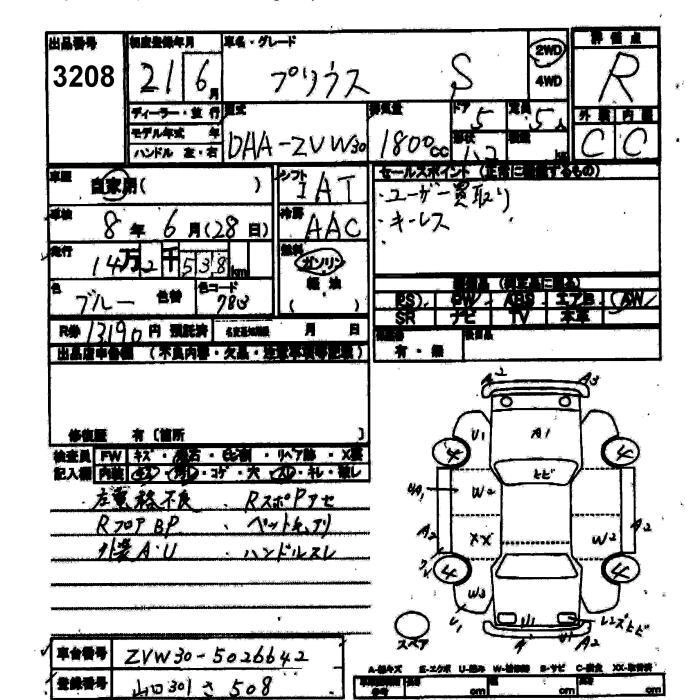 出品番号 初度登録年月 車名・グレード 2WD 評価点
3208 21 6月 プリウス S 4WD R
ディーラー・並行 型式 排気量 ドア 5 定員 5人 外装 内装
モデル年式 年 DAA-ZVW30 1800cc 形状 C C
ハンドル 左・右
車歴 自家用( ) シフト IAT セールスポイント
車検 8年6月(28日) 冷房 AAC ・ユーザー買取り
走行 14万2千538km 燃料 ガソリン ・キーレス
軽油
色 ブルー 色替 色コード ( )
PS PW ABS エアB AW
R券 13190円 預託済 月 日 SR ナビ TV 本革
出品店申告欄 (不良内容・欠品・注意事項等記載) 有・無
修復歴 有(箇所
検査員 FW キズ・飛石・ヒビ割・リペア跡・X要
記入欄 内装 キズ・汚れ・コゲ・穴・スレ・キレ・破し
RスポPアセ
RフロアBP ・ペットキャリ
外装A・U ・ハンドルスレ
A2 A3
U1 A1
4 4
トビ
UA1 W2
A2 XX W2 A2
4 4
W3
U1 U1 レンズヒビ
スペア A U1 A2
車台番号 ZVW30-5026642
登録番号 山口301さ508
A-線キズ E-エクボ U-凹み W-補修跡 S-サビ C-腐食 XX-交換済
cm cm cm